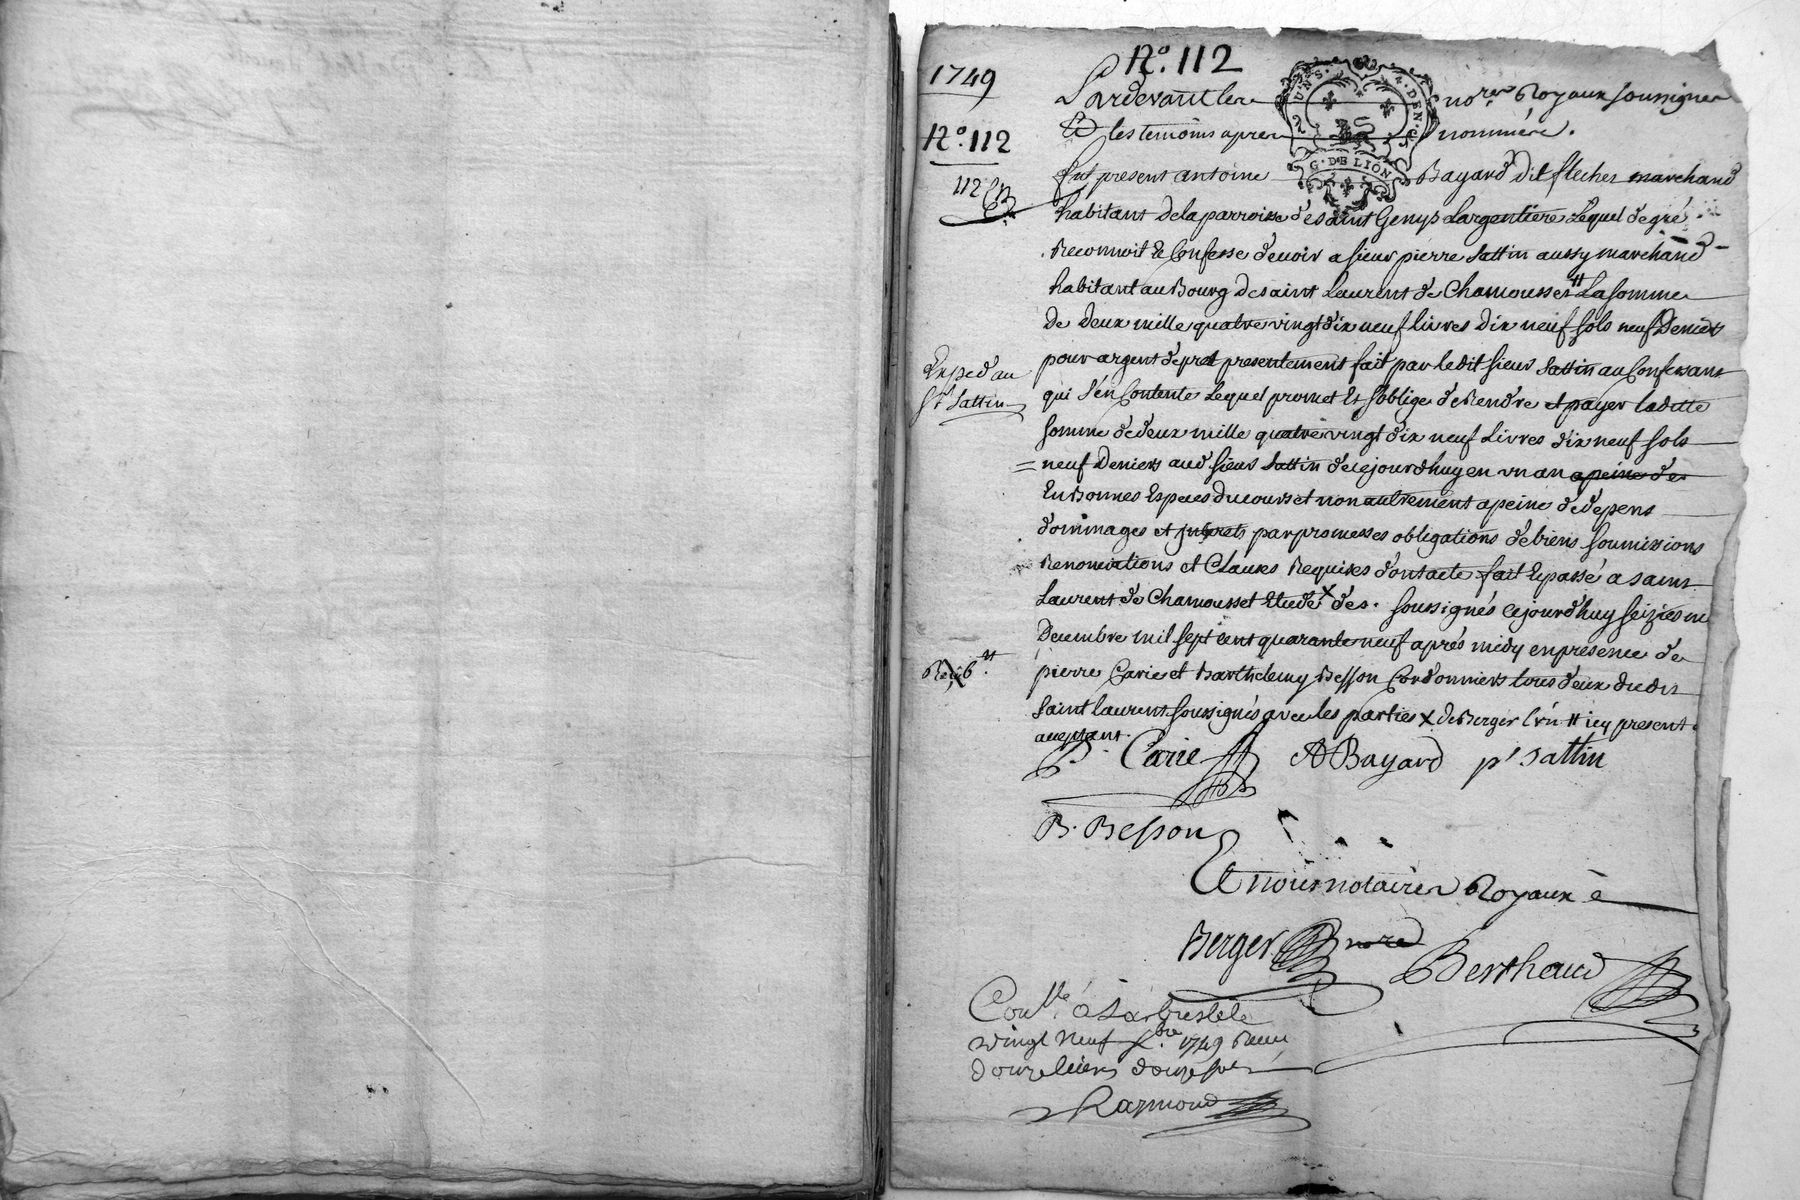 1749
N.o 112
N.o 112
112
Pardevant les no.res Royaux soussignes
Et les temoins apres nommés.
G. DE LION
fut present antoine Bayard dit flechet marchand
habitant de la parroisse de saint Genys Largentiere Lequel de gré
Reconnoit et Confesse devoir a sieur pierre Sattin aussy marchand
habitant au Bourg de saint Laurent de Chamousset # La somme
De deux mille quatre vingt dix neuf livres dix neuf sols neuf Deniers
Exped au
Sr Sattin
pour argent de pret presentement fait par ledit sieur Sattin au Confessant
qui s'en Contente Lequel promet Et s'oblige de Rendre et payer laditte
somme de deux mille quatre vingt dix neuf Livres dix neuf sols
neuf Deniers aud sieur Sattin de cejourdhuy en un an a peine de
En Bonnes Especes du cours et non autrement a peine de depens
dommages et interets par promesses obligations de biens soumissions
Renonciations et Clauses Requises dont acte fait Et passé a saint
Laurent de Chamousset Etude x des soussignés cejourd'huy seizieme
Decembre mil sept cent quarante neuf aprés midy en presence de
pierre Carie et Barthelemy Besson Cordonniers tous deux dudit
saint laurent soussignés avec les parties x de Berger l'un # icy present
acceptant.
P. Carie ABayard pr Sattin
B. Besson
Et nous notaires Royaux
Berger Berthaud
Con.lle a Larbresle le
vingt neuf x.bre 1749 Receu
douze livres douze sols
Raymond